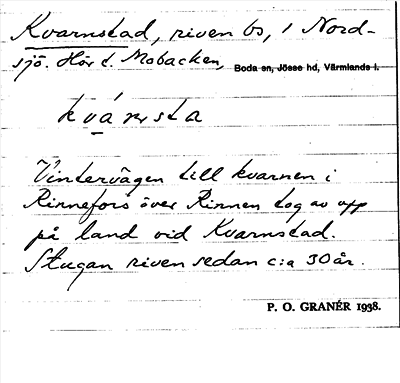 Kvarnstad, riven bs, i Nord-
sjö. Hör t. Mobacken, Boda sn, Jösse hd, Värmlands l.
kvárnsta
Vintervägen till kvarnen i
Rinnefors över Rinnen tog av upp
på land vid Kvarnstad.
Stugan riven sedan c:a 30 år.
P. O. GRANÉR 1938.